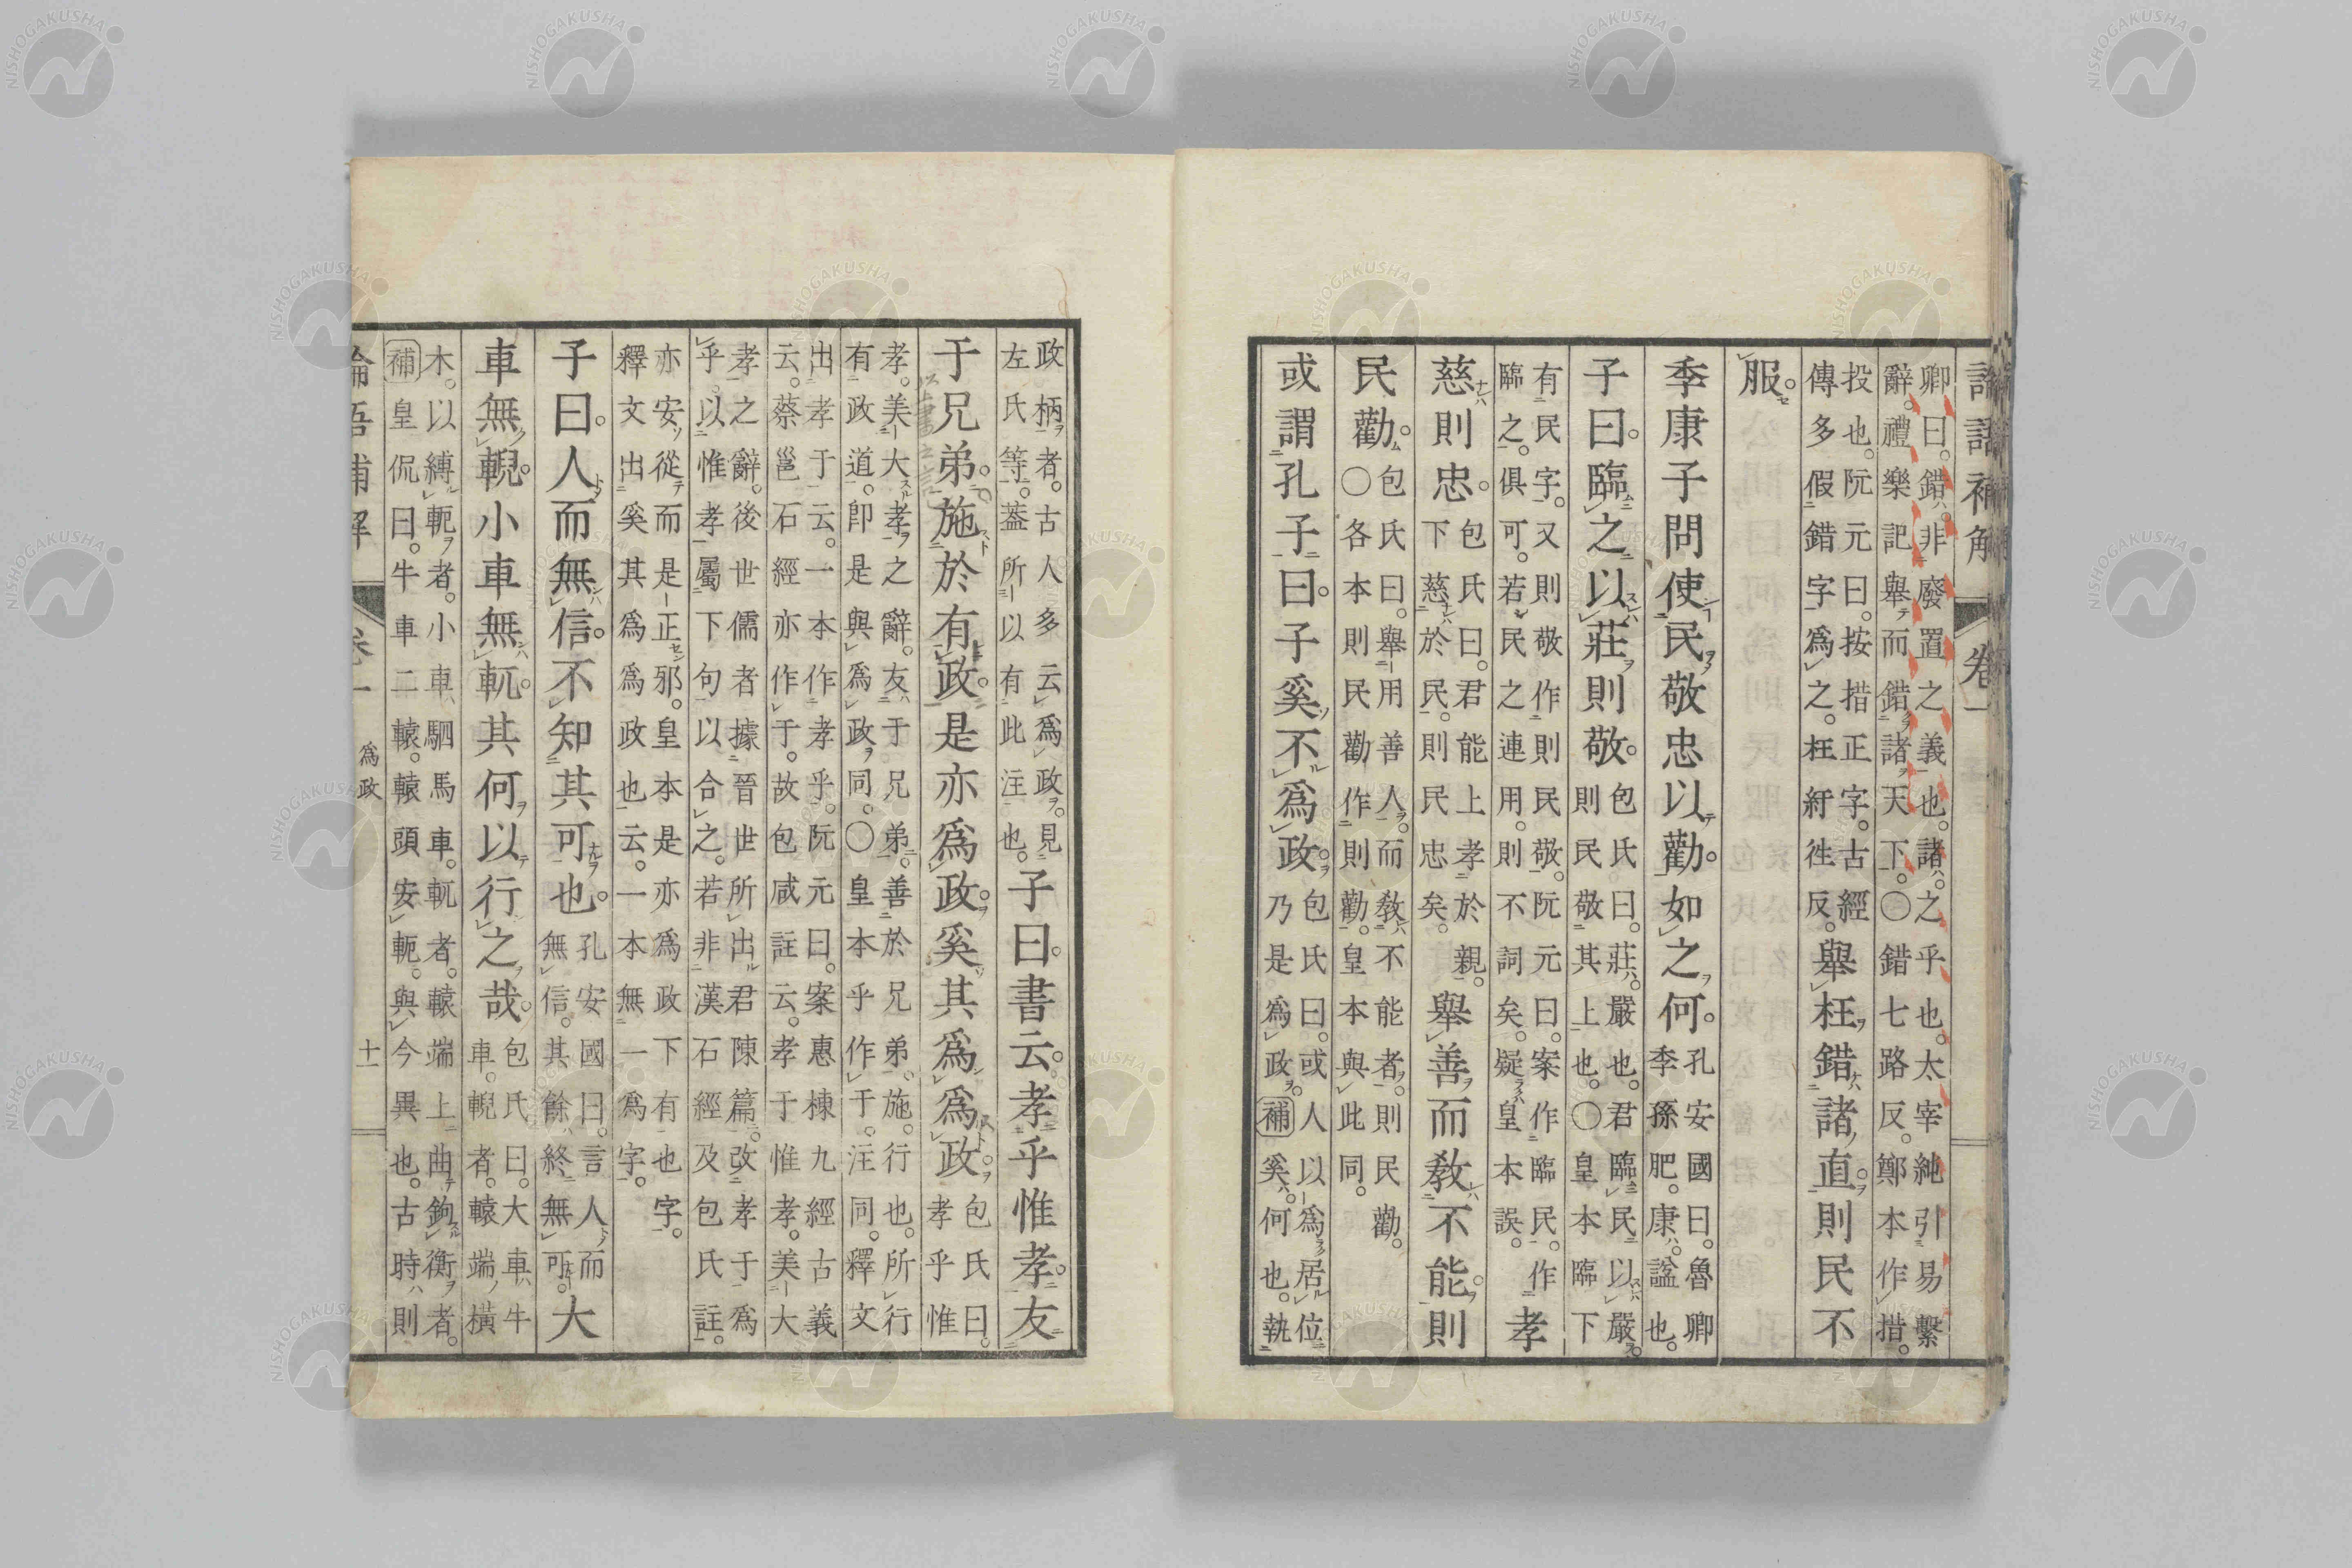 論語補解 卷一
卿曰。錯。非廢置之義也。諸。之乎也。太宰純引易繫
辭。禮樂記舉而錯諸天下。〇錯七路反。鄭本作措。
投也。阮元曰。按措正字。古經
傳多假錯字爲之。枉紆徃反。
舉枉錯諸直。則民不
服。
季康子問使民敬忠以勸。如之何。
孔安國曰。魯卿
季孫肥。康。諡也。
子曰。臨之以莊則敬。
包氏曰。莊。嚴也。君臨民以嚴。
則民敬其上也。〇皇本臨下
有民字。又則敬作則民敬。阮元曰。案作臨民。作
臨之。俱可。若民之連用。則不詞矣。疑皇本誤。
孝
慈則忠。
包氏曰。君能上孝於親。
下慈於民。則民忠矣。
舉善而敎不能。則
民勸。
包氏曰。舉用善人。而敎不能者。則民勸。
〇各本則民勸作則勸。皇本與此同。
或謂孔子曰。子奚不爲政。
包氏曰。或人以爲居位
乃是爲政。補奚。何也。執
政柄者。古人多云爲政。見
左氏等。蓋所以有此注也。
子曰。書云。孝乎惟孝。友
于兄弟。施於有政。是亦爲政。奚其爲爲政。
包氏曰。
孝乎惟
孝。美大孝之辭。友于兄弟。善於兄弟。施。行也。所行
有政道。卽是與爲政同。〇皇本乎作于。注同。釋文
出孝于云。一本作孝乎。阮元曰。案惠棟九經古義
云。蔡邕石經亦作于。故包咸註云。孝于惟孝。美大
孝之辭。後世儒者據晉世所出君陳篇。改孝于爲
乎。以惟孝屬下句以合之。若非漢石經及包氏註。
亦安從而是正邪。皇本是亦爲政下有也字。
釋文出奚其爲爲政也云。一本無一爲字。
子曰。人而無信。不知其可也。
孔安國曰。言人而
無信。其餘終無可。
大
車無輗。小車無軏。其何以行之哉。
包氏曰。大車牛
車。輗者。轅端橫
木。以縛軛者。小車駟馬車。軏者。轅端上曲鉤衡者。
補皇侃曰。牛車二轅。轅頭安軛。與今異也。古時則
論語補解 卷一 爲政 十一